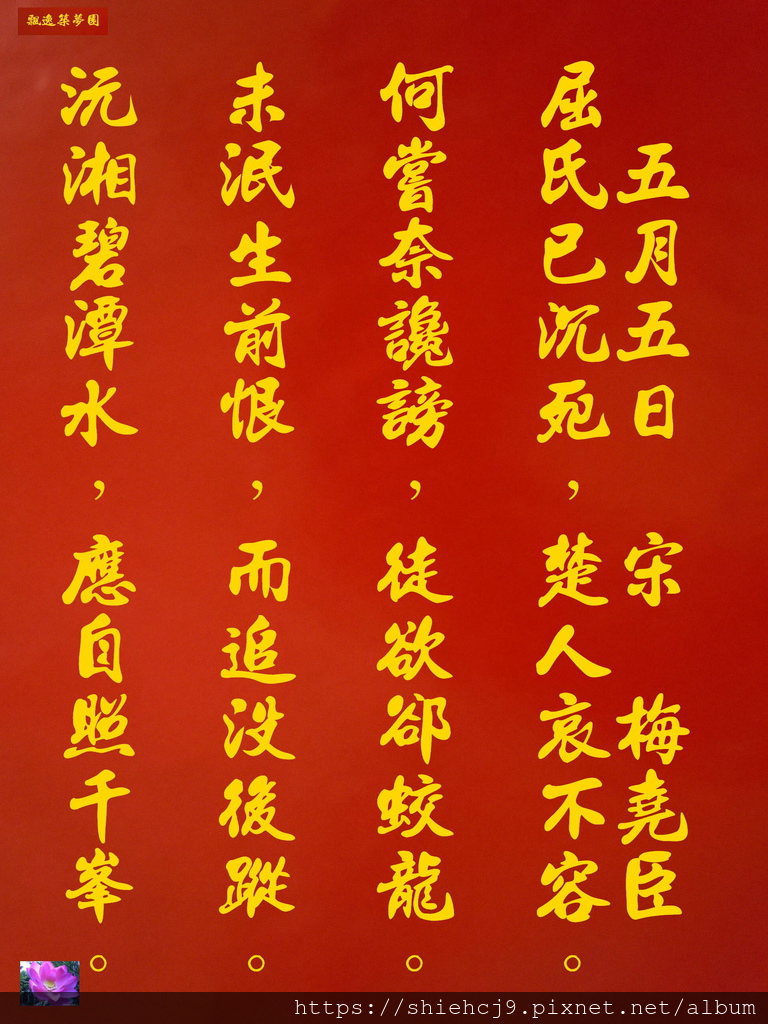 飄逸築夢園
五月五日 宋 梅堯臣
屈氏已沉死，楚人哀不容。
何嘗奈讒謗，徒欲卻蛟龍。
未泯生前恨，而追沒後蹤。
沅湘碧潭水，應自照千峯。
https://shiehcj9.pixnet.net/album